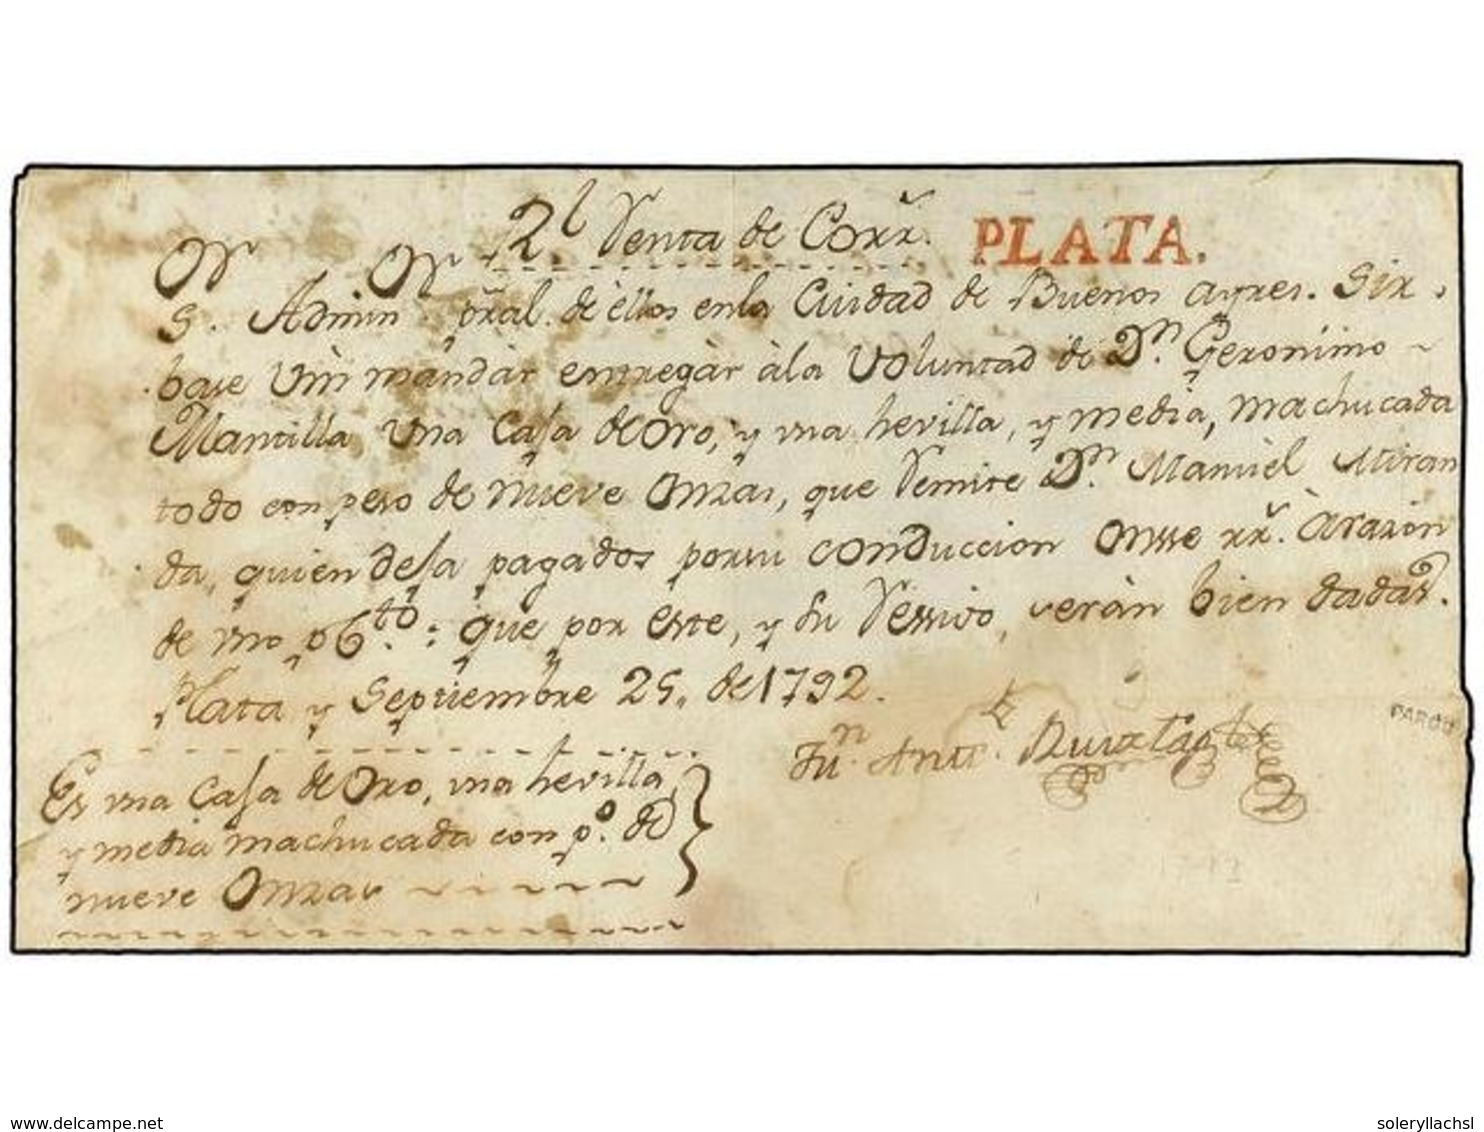 Rl Renta de Corrs. PLATA.
Sr. Adminr. pral. de èllos en la Ciudad de Buenos ayres. Sir,
base Vm mandàr entregàr àla Voluntad de Dn. Geronimo ~
Mantilla Una Caja de Oro, y una hevilla, y media, machucada
todo con peso de nueve Onzas, que Remite Dn. Manuel Miran
da, quien deja pagados por su conduccion Onsse rrs. Àrazon
de uno p6.to: que por este, y su Ressivo, veràn bien dadas.
Plata y Septiembre 25,, de 1792.
Jun. Anto.
Es una Caja de Oro, una hevilla,
y media machucada con po. de
nueve Onzas
PARDO
1792
www.delcampe.net
soleryllachsl